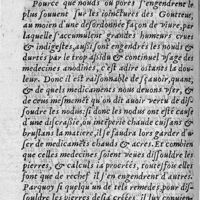 Pource que nouds ou pores s'engendrent le
plus souuent sur les ioinctures des Goutteux,
au moien d'une desordonnee façon de viure, par
laquelle s'accumulent grandes humeurs crues
& indigestes, aussi sont engendrés les nouds &
durtés par le trop assidu & continuel vsage des
medecines anodines, c'est à dire ostants la dou-
leur. Donc il est raisonnable de sçauoir, quant,
& de quels medicaments nous deuons vser, &
mesmement qu'on dit auoir vertu de dis-
soudre les nodus: si donc les nodus ont esté causés
d'une discrasie, ou intemperie chaude cuisans &
brustans la matiere, il se faudra lors garder d'v-
ser de medicamẽts chauds & acres. Et combien
que celles medecines soient veuës dissoudre les
pierres, & calculs ia procréés, toutesfois elles
font que de rechef il s'en engendrent d'autres.
Parquoy si quelqu'un de tels remedes, pour dis-
soudre les pierres desia creées, il luy conuient